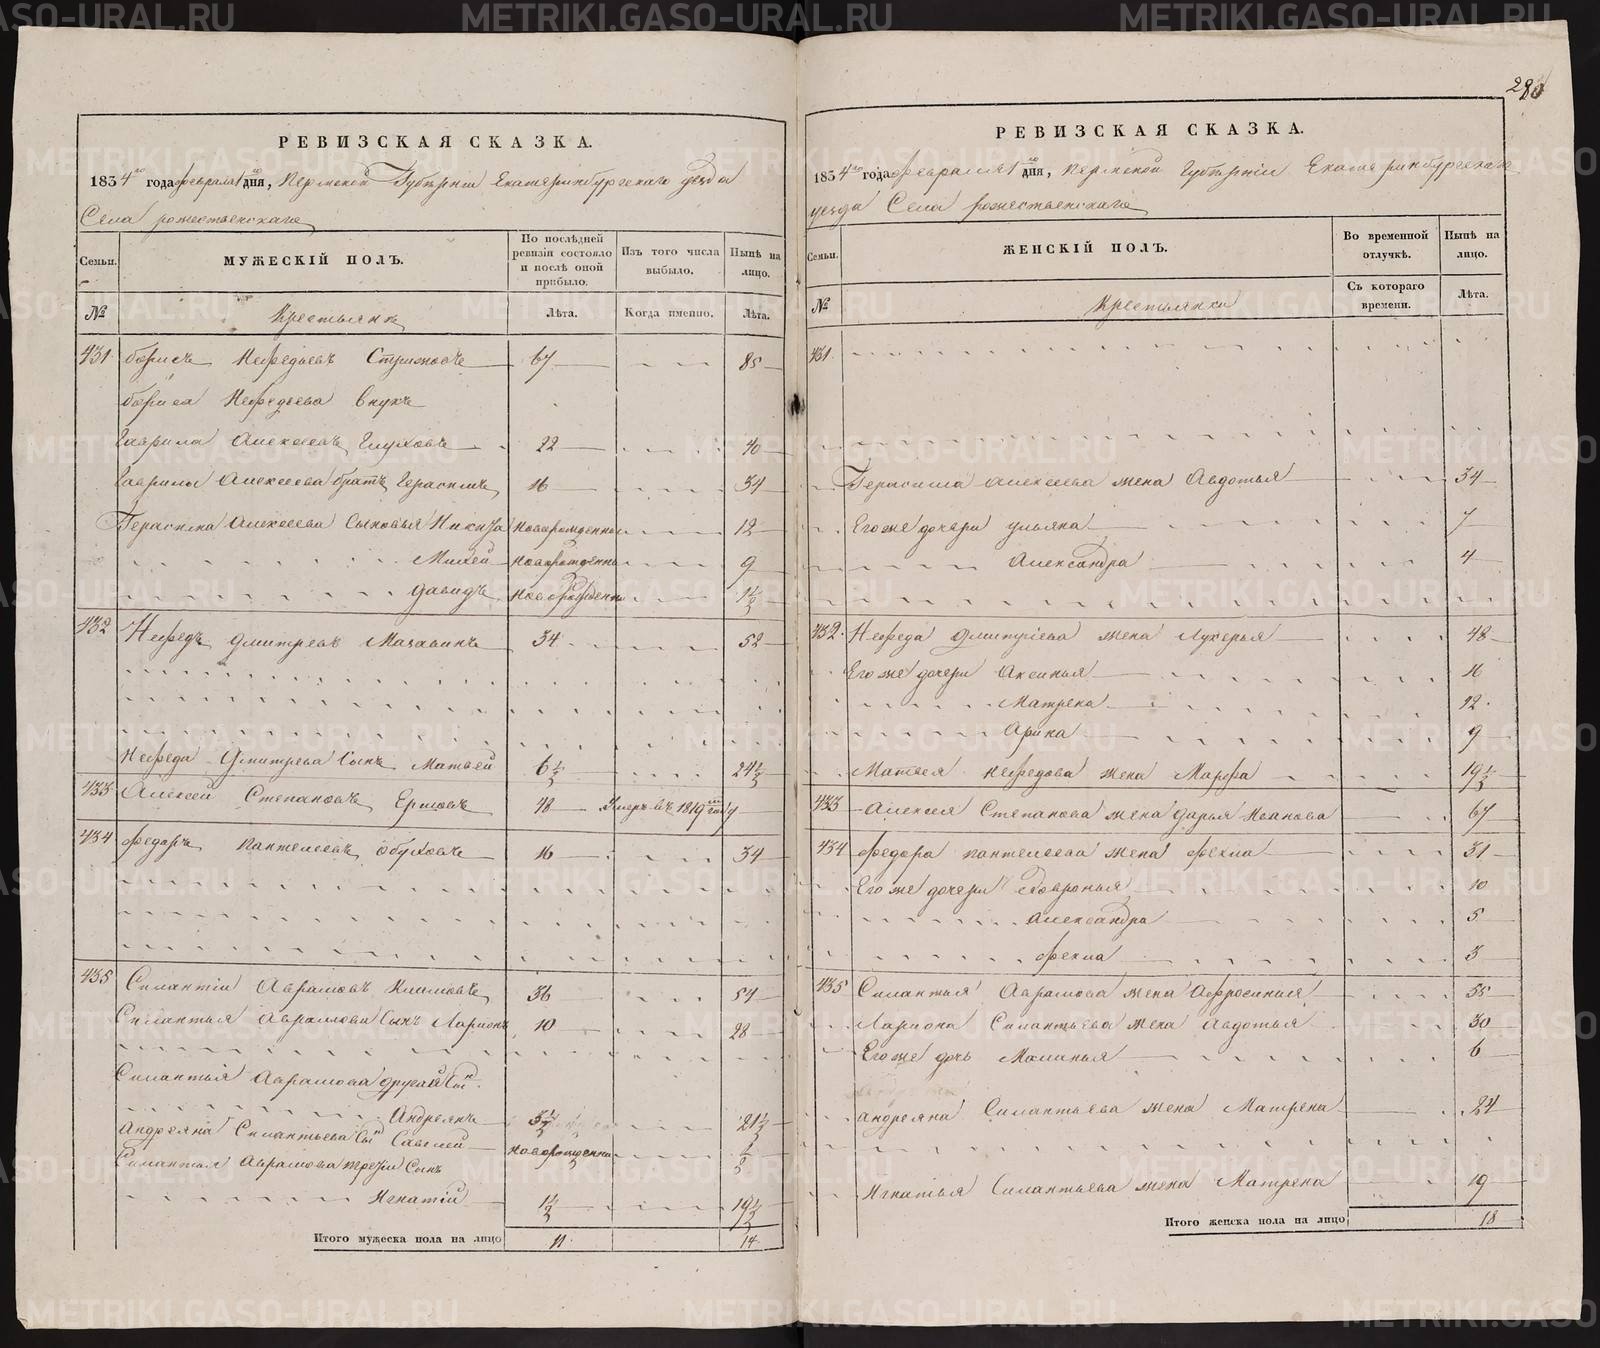 РЕВИЗСКАЯ СКАЗКА.
1834 года февраля 1 дня, Пермской Губернiи Екатеринбургскаго уезда
Села рожественскаго
Семьи. МУЖЕСКIЙ ПОЛЪ. По послѣдней ревизiи состояло и послѣ оной прибыло. Изъ того числа выбыло. Нынѣ на лицо.
№ Крестьянъ Лѣта. Когда именно. Лѣта.
431 борисъ Нефедьевъ 67 85
бориса Нефедьева внукъ
Гаврила Алексеевъ Глуховъ 22 40
Гаврилы Алексеева братъ Герасимъ 16 34
Герасима Алексеева Сыновья Никита новорожденной 12
Михей новорожденны 9
давидъ новорожденны 1½
432 Нефедъ дмитревъ 34 52
Нефеда дмитрева Сынъ Матвей 6½ 24½
433 Алексей Степановъ Ершовъ 48 Умеръ въ 1819 году
434 федоръ пантелеевъ обуховъ 16 34
435 Силантiи Аврамовъ 36 54
Силантья Аврамова Сынъ Ларионъ 10 28
Силантья Аврамова другой Сын
Андреянъ 3½ 21½
Андреяна Силантьева Сын Савелей новорожденны ½
Силантья Аврамова третiи Сынъ
Игнатiй 1½ 19½
Итого мужеска пола на лицо 11 14
РЕВИЗСКАЯ СКАЗКА.
1834 года февраля 1 дня, Пермской Губернiи Екатеринбургскаго
уезда Села рожественскаго
Семьи. ЖЕНСКIЙ ПОЛЪ. Во временной отлучкѣ. Нынѣ на лицо.
№ Крестьянки Съ котораго времени. Лѣта.
431
Герасима Алексеева жена Авдотья 34
Его же дочери ульяна 7
Александра 4
432 Нефеда дмитрiева жена Лукерья 48
Его же дочери Аксинья 16
Матрена 12
Арина 9
Матвея Нефедова жена Марфа 19½
433 Алексея Степанова жена дарья Иванова 67
434 федора пантелеева жена фекла 31
Его же дочери 10
Александра 5
фекла 3
435 Силантья Аврамова жена Афросинья 55
Лариона Силантьева жена Авдотья 30
Его же дочь Маланья 6
Андреяна Силантьева жена Матрена 24
Игнатья Силантьева жена Матрена 19
Итого женска пола на лицо 18
METRIKI.GASO-URAL.RU